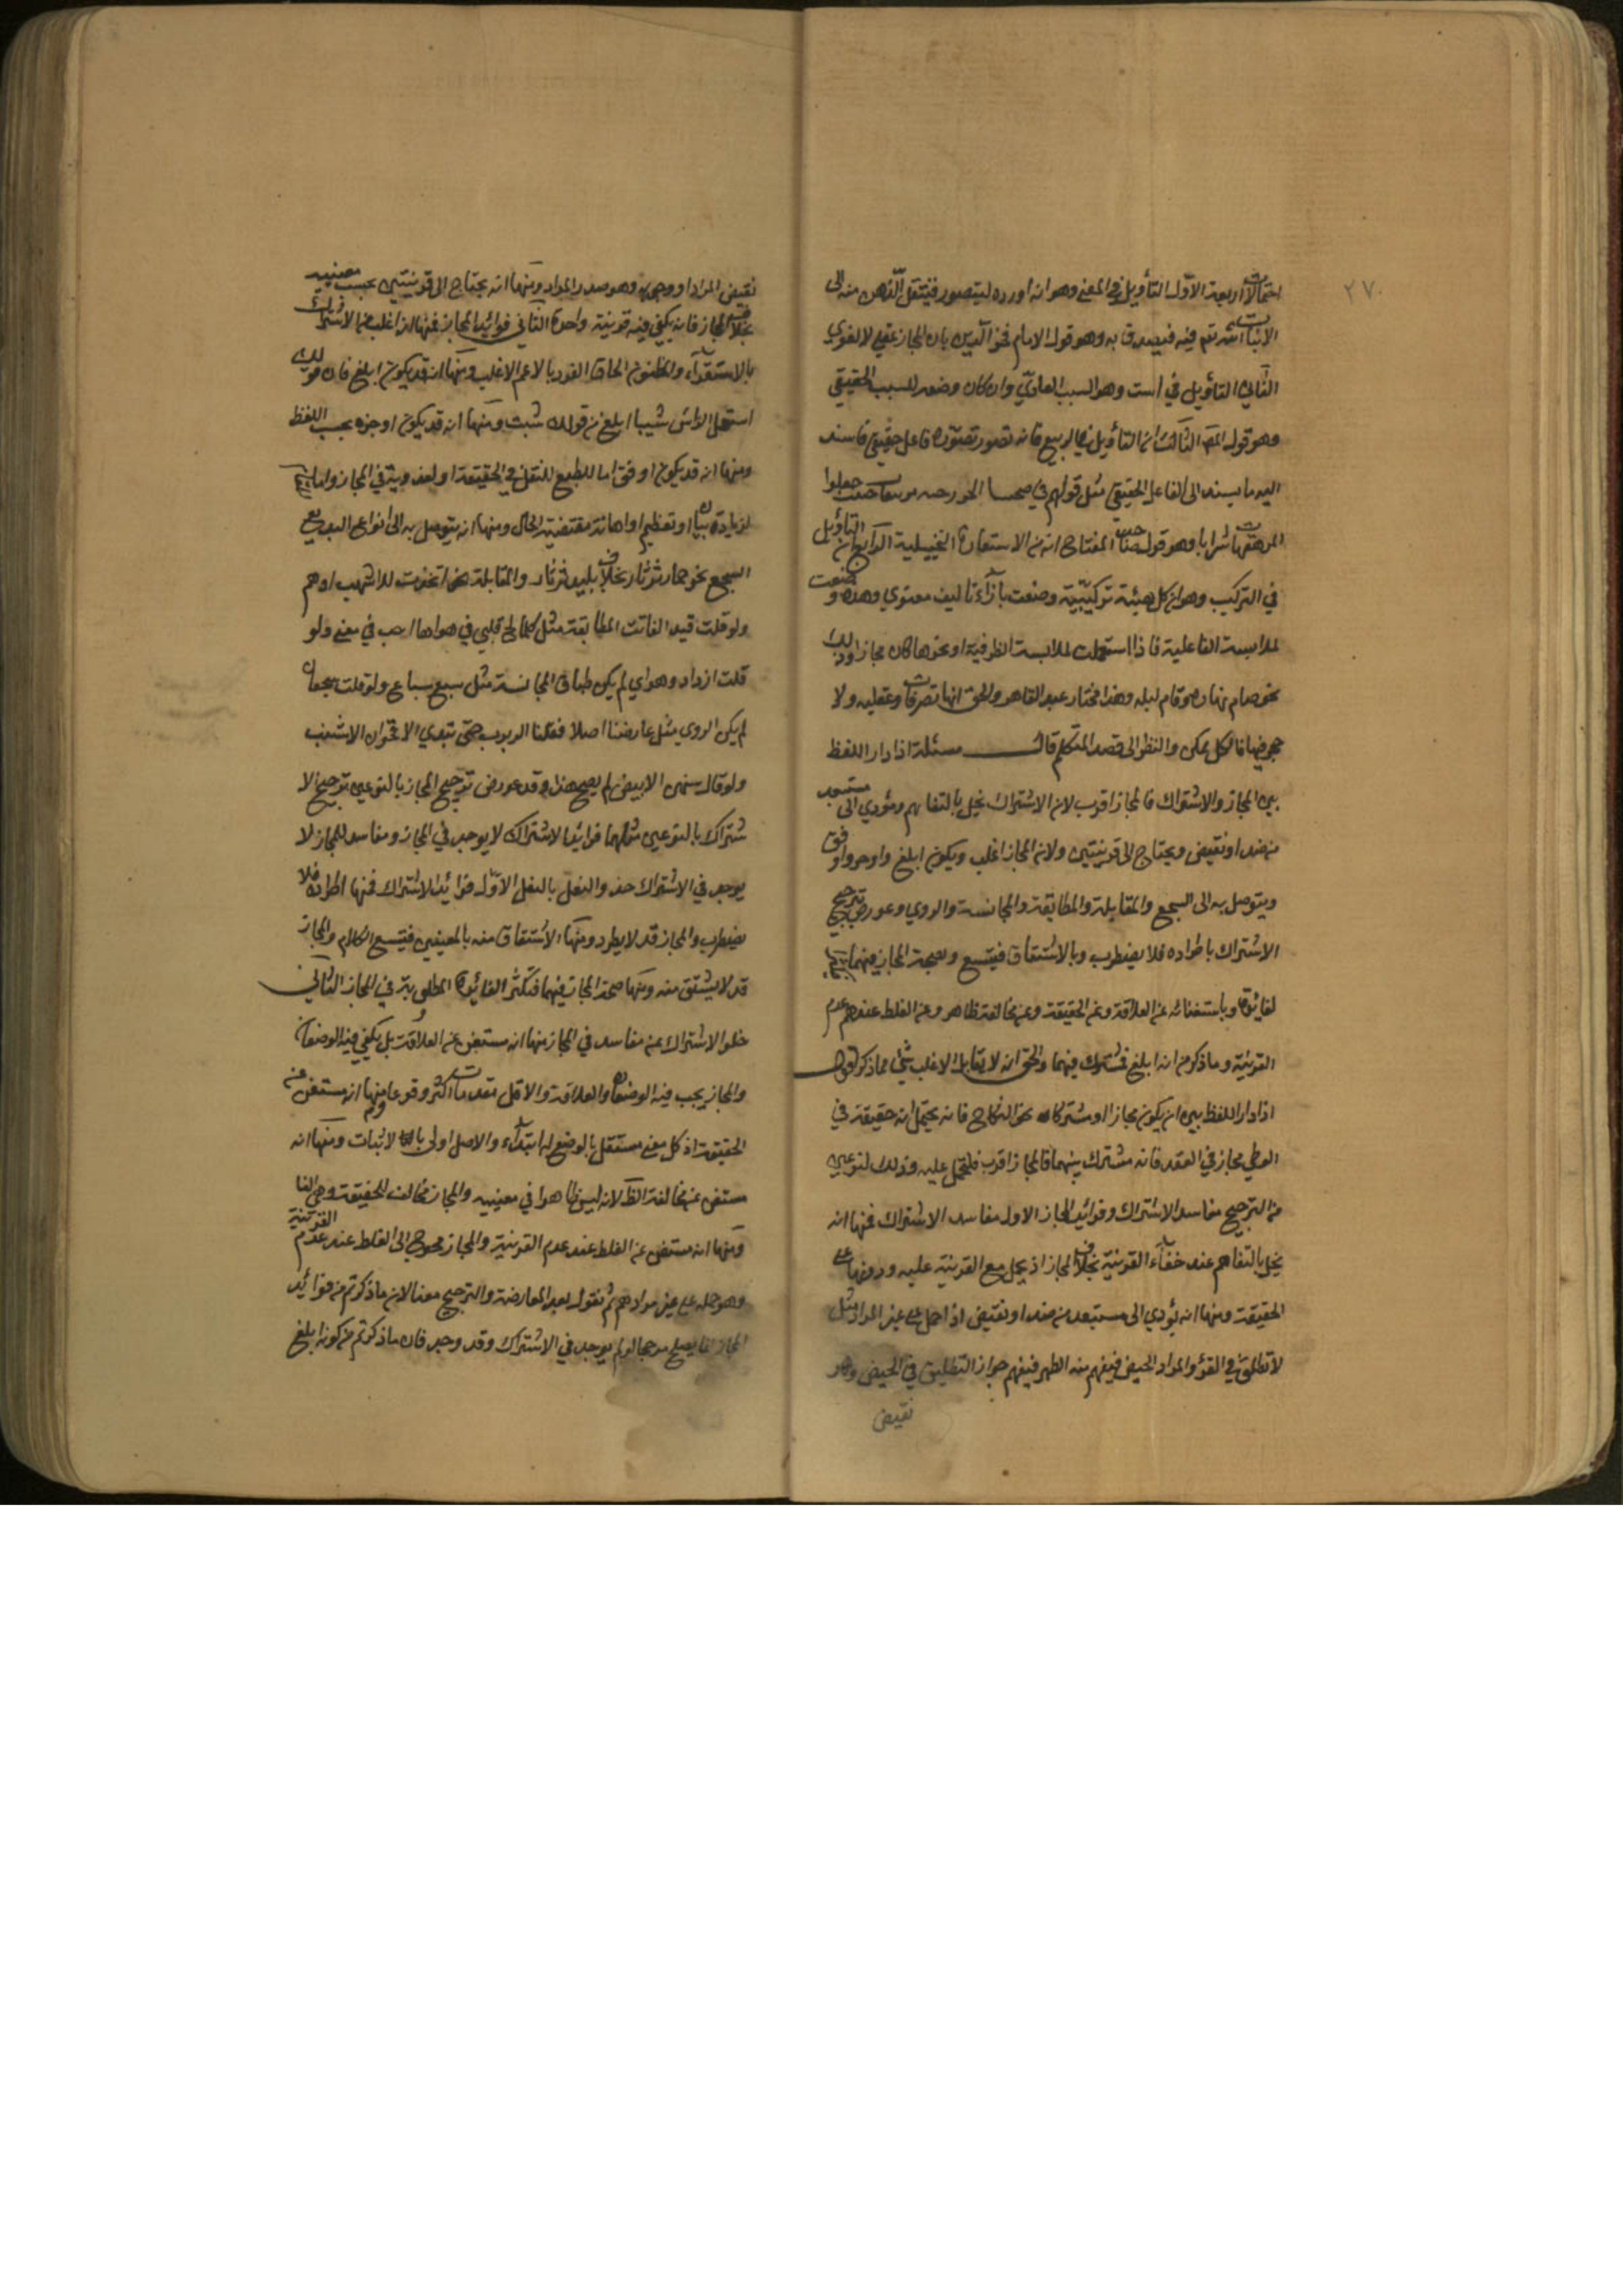 ٢٧٠
احتمالات اربعة الاول التأويل في المعنى وهو انه اورده ليتصور فينتقل الذهن منه الى
الانبات الله تع فيه فيصدق به وهو قول الامام فخر الدين بان المجاز عقلي لا لغوي
الثاني التأويل في انبت وهو السبب العادي وان كان وضعه للسبب الحقيقي
وهو قول المص الثالث ان التأويل في الربيع فانه تصور تصوره فاعل حقيقي فاسند
اليه ما يسند الى الفاعل الحقيقي مثل قولهم في جعلوا
المرهفها شرابا وهو قول صاحب المفتاح انه من الاستعارة التخييلية الرابع ان التأويل
في التركيب وهو ان كل هيئة تركيبية وضعت بازاء تاليف معنوي وهذه وضعت
لملابسة الفاعلية فاذا استعملت لملابسة الظرفية او نحوها كان مجازا وذلك
نحو صام نهاره وقام ليله وهذا مختار عبد القاهر والحق انها تصرفات عقلية ولا
حجر فيها فالكل ممكن والنظر الى قصد المتكلم قال مسئلة اذا دار اللفظ
بين المجاز والاشتراك فالمجاز اقرب لان الاشتراك يخل بالتفاهم ويؤدي الى مستبعد
من ضد او نقيض ويحتاج الى قرينتين ولان المجاز اغلب ويكون ابلغ واوجز واوفق
ويتوصل به الى السجع والمقابلة والمطابقة والمجانسة والروي وعورض بترجيح
الاشتراك باطراده فلا يضطرب وبالاشتقاق فيتسع وبصحة المجاز فيهما
الفائدة وباستغنائه عن العلاقة وعن الحقيقة وعن مخالفة ظاهر وعن الغلط عند عدم
القرينة وما ذكر من انه ابلغ فمشترك فيهما والحق انه لا يقابل الاغلب شئ مما ذكر اقول
اذا دار اللفظ بين ان يكون مجازا او مشتركا نحو النكاح فانه يحتمل انه حقيقة في
الوطي مجاز في العقد فانه مشترك بينهما فالمجاز اقرب فليحمل عليه وذلك لنوعين
من الترجيح مفاسد الاشتراك وفوائد المجاز الاول مفاسد الاشتراك فمنها انه
يخل بالتفاهم عند خفاء القرينة بخلاف المجاز اذ يحمل مع القرينة عليه ودونها على
الحقيقة ومنها انه يؤدي الى مستبعد من ضد او نقيض اذا حمل على غير المراد مثل
لا تطلق في القرؤ والمراد الحيض فيفهم منه الطهر فيفهم جواز التطليق في الحيض وهو
نقيض
نقيض المراد او وجوبه وهو ضد المراد ومنها انه يحتاج الى قرينتين بحسب معنييه
بخلاف المجاز فانه يكفي فيه قرينة واحدة الثاني فوائد المجاز فمنها انه اغلب من الاشتراك
بالاستقراء والمظنون الحاق الفرد بالاعم الاغلب ومنها انه قد يكون ابلغ فان قولك
اشتعل الراس شيبا ابلغ من قولك شبت ومنها انه قد يكون اوجز بحسب اللفظ
ومنها انه قد يكون اوفق اما للطبع لثقل في الحقيقة او لعذوبة في المجاز واما
لزيادة بيان او تعظيم او اهانة مقتضية الحال ومنها انه يتوصل به الى انواع البديع
السجع نحو حمار ثرثار بخلاف بليد ثرثار والمقابلة نحو اتخذت للاشهب ادهم
ولو قلت قيد الفاتت المطابقة مثل كلما لج قلبي في هواها لجت في مقتي ولو
قلت ازداد هواي لم يكن طباق المجانسة مثل سبع سباع ولو قلت شجعان
لم يكن الروي مثل عارضننا اصلا فقلنا الربرب حتى تبدي الاقحوان الاشنب
ولو قال سنهن الابيض لم يصح هذا وقد عورض ترجيح المجاز بالنوعين بترجيح الا
شتراك بالنوعين مثلهما فوائد الاشتراك لا يوجد في المجاز ومفاسد للمجاز لا
يوجد في الاشتراك حذو النعل بالنعل الاول فوائد الاشتراك فمنها اطراده فلا
يضطرب والمجاز قد لا يطرد ومنها الاشتقاق منه بالمعنيين فيتسع الكلام والمجاز
قد لا يشتق منه ومنها صحة المجاز فيهما فتكثر الفائدة المطلوبة في المجاز الثاني
خلو الاشتراك عن مفاسد في المجاز منها انه مستغن عن العلاقة بل يكفي فيه الوضعان
والمجاز يجب فيه الوضعان والعلاقة والاقل مقدمات اكثر وقوعا ومنها انه مستغن عن
الحقيقة اذ كل معنى مستقل بالوضع له ابتداء والاصل اولى بالاثبات ومنها انه
مستغن عن مخالفة الظ لانه ليس ظاهرا في معنييه والمجاز مخالف للحقيقة وهي الظا
ومنها انه مستغن عن الغلط عند عدم القرينة والمجاز محوج الى الغلط عند عدم القرينة
وهو حمله على غير مرادهم ثم نقول بعد المعارضة والترجيح معنا لان ما ذكرتم من فوائد
المجاز انما يصلح مرجحا لو لم يوجد في الاشتراك وقد وجد فان ما ذكرتم من كونه ابلغ